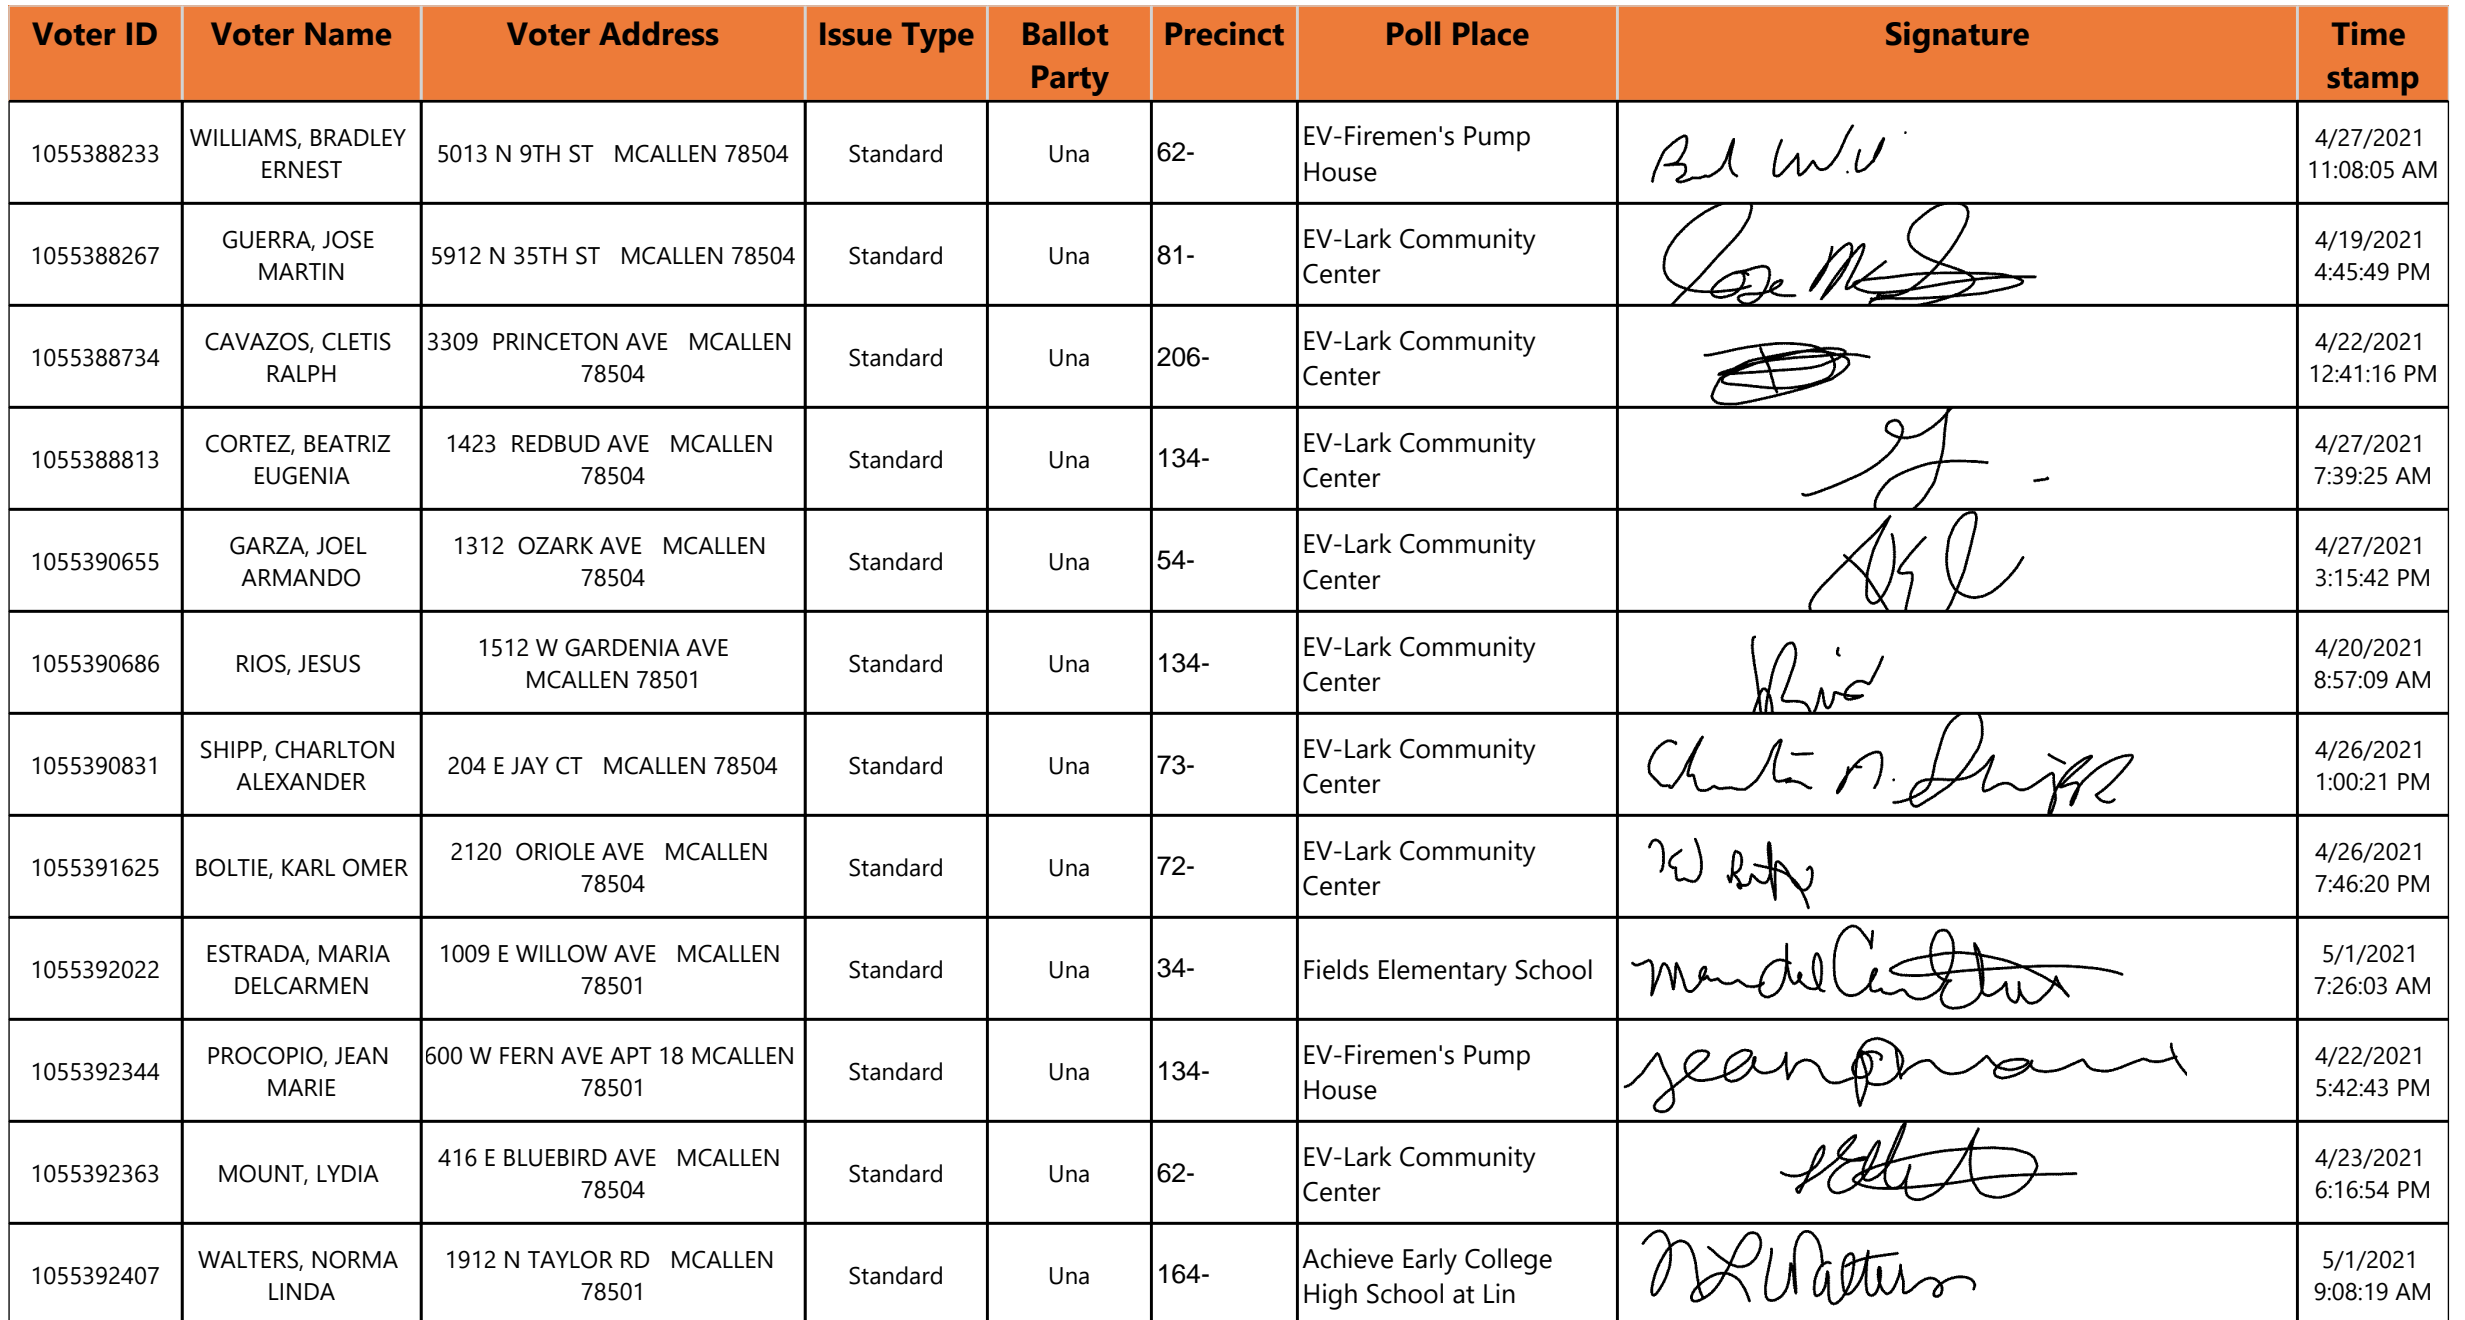 Voter ID Voter Name Voter Address Issue Type Ballot Party Precinct Poll Place Signature Time stamp
1055388233 WILLIAMS, BRADLEY ERNEST 5013 N 9TH ST MCALLEN 78504 Standard Una 62- EV-Firemen's Pump House 4/27/2021 11:08:05 AM
1055388267 GUERRA, JOSE MARTIN 5912 N 35TH ST MCALLEN 78504 Standard Una 81- EV-Lark Community Center Jose 4/19/2021 4:45:49 PM
1055388734 CAVAZOS, CLETIS RALPH 3309 PRINCETON AVE MCALLEN 78504 Standard Una 206- EV-Lark Community Center 4/22/2021 12:41:16 PM
1055388813 CORTEZ, BEATRIZ EUGENIA 1423 REDBUD AVE MCALLEN 78504 Standard Una 134- EV-Lark Community Center 4/27/2021 7:39:25 AM
1055390655 GARZA, JOEL ARMANDO 1312 OZARK AVE MCALLEN 78504 Standard Una 54- EV-Lark Community Center 4/27/2021 3:15:42 PM
1055390686 RIOS, JESUS 1512 W GARDENIA AVE MCALLEN 78501 Standard Una 134- EV-Lark Community Center 4/20/2021 8:57:09 AM
1055390831 SHIPP, CHARLTON ALEXANDER 204 E JAY CT MCALLEN 78504 Standard Una 73- EV-Lark Community Center Shipp 4/26/2021 1:00:21 PM
1055391625 BOLTIE, KARL OMER 2120 ORIOLE AVE MCALLEN 78504 Standard Una 72- EV-Lark Community Center 4/26/2021 7:46:20 PM
1055392022 ESTRADA, MARIA DELCARMEN 1009 E WILLOW AVE MCALLEN 78501 Standard Una 34- Fields Elementary School 5/1/2021 7:26:03 AM
1055392344 PROCOPIO, JEAN MARIE 600 W FERN AVE APT 18 MCALLEN 78501 Standard Una 134- EV-Firemen's Pump House Jean 4/22/2021 5:42:43 PM
1055392363 MOUNT, LYDIA 416 E BLUEBIRD AVE MCALLEN 78504 Standard Una 62- EV-Lark Community Center 4/23/2021 6:16:54 PM
1055392407 WALTERS, NORMA LINDA 1912 N TAYLOR RD MCALLEN 78501 Standard Una 164- Achieve Early College High School at Lin N L Walters 5/1/2021 9:08:19 AM